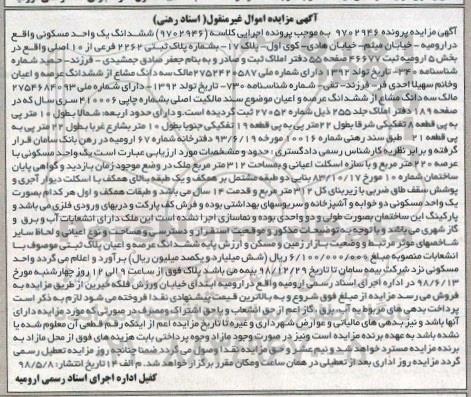 آگهی مزایده اموال غیرمنقول( اسناد رهنی)
آگهی مزایده پرونده ۹۷۰۲۹۴۶ به موجب پرونده اجرایی کلاسه (۹۷۰۲۹۴۶) ششدانگ یک واحد مسکونی واقع
در ارومیه - خیابان میثم- خیابان هادی- کوی اول- پلاک ۱۷- بشماره پلاک ثبتی ۲۲۶۲ فرعی از ۱۰ اصلی واقع در
بخش ۵ ارومیه ثبت ۴۶۶۷۹ صفحه ۵۵ دفتر املاک ثبت و صادر و به بنام جعفر صادق جمشیدی - فرزند- حمید شماره
شناسنامه ۳۴۰- تاریخ تولد ۱۳۹۲ دارای شماره ملی مالک سه دانگ مشاع از ششدانگ عرصه و اعیان
وخانم سهیلا احدی فر- فرزند- تقی- شماره شناسنامه ۷۳۰- تاریخ تولد ۱۳۹۲ دارای شماره ملی ۲۷۵۴۶۸۴۰۹۳
مالک سه دانگ مشاع از ششدانگ عرصه و اعیان موضوع سند مالکیت اصلی بشماره چاپی ۴۱۰۰۰۶ سری سال که در
صفحه ۱۸۹ دفتر املاک جلد ۲۵۵ ذیل شماره ۲۷۰۵۲ ثبت گردیده است.و دارای حدود اربعه: شمالا بطول ۱۰ متر پی به
پی قطعه تفکیکی شرقا بطول ۲۲ متر پی به پی قطعه ۱۹ تفکیکی جنوبا بطول ۱۰ متر بشارع غربا بطول ۲۲ متر پی به
پی قطعه ۲۱ طبق سند رهنی شماره ۱۰۰۱۶ مورخه ۹۳/۶/۱۹ دفترخانه شماره ۶۷ ارومیه در رهن بانک سامان قرار
گرفته و برابر نظریه کارشناس رسمی دادگستری: حدود و مشخصات مورد ارزیابی عبارت است یک واحد مسکونی با
عرصه ۲۲۰ متر مربع و با سازه اسکلت اعیانی و بمساحت ۳۱۲ متر مربع ملک در وضع موجود زمان بازدید و گواهی پایان
ساختمان شماره ۱۰ مورخ ۸۴/۱۰/۱۷ بنایی دو طبقه مشتمل بر همکف و یک طبقه بالای همکف با اسکلت دیوار آجری و
پوشش سقف طاق ضربی با زیربنای کل ۳۱۲ متر مربع و قدمت ۱۴ سال می باشد و طبقات همکف و اول هر کدام بصورت
یک واحد مسکونی دو خوابه و آشپزخانه و سرویسهای بهداشتی بوده و فرش کف پارکت و دربهای ورودی فلزی می باشد و
پارکینگ این ساختمان بصورت طولی و دو واحدی بوده و نماسازی اجرا نشده است این ملک دارای انشعابات آب و برق و
گاز شهری می باشد و با توجه به توضیحات مذکور و موقعیت استقرار و دسترسی و مساحت و نوع اعیانی و لحاظ سایر
شاخصهای موثر مرتبط و وضعیت بازار زمین و مسکن و ارزش پایه ششدانگ عرصه و اعیان پلاک ثبتی موصوف با
انشعابات منصوبه مبلغ ۶/۱۰۰/۰۰۰/۰۰۰ ریال (شش میلیارد و یکصد میلیون ریال) برآورد و اعلام می گردد واحد
مسکونی نزد شرکت بیمه سامان تا تاریخ ۹۸/۱۲/۲۹ بیمه می باشد پلاک فوق از ساعت ۹ الی ۱۲ روز چهارشنبه مورخ
۹۸/۶/۱۳ در اداره اجرای اسناد رسمی ارومیه واقع در ارومیه ابتدای خیابان ورزش فلکه خیرین از طریق مزایده به
فروش می رسد مزایده از مبلغ فوق شروع و به بالاترین قیمت پیشنهادی نقدا فروخته می شود لازم به ذکر است
پرداخت بدهی های مربوط به آب، برق، گاز اعم از حق انشعاب و یا حق اشتراک و مصرف در صورتی که مورد مزایده دارای
آنها باشد و نیز بدهی های مالیاتی و عوارض شهرداری و غیره تا تاریخ مزایده اعم از اینکه رقم قطعی آن معلوم شده یا
نشده باشد به عهده برنده مزایده است ونیز در صورت وجود مازاد وجوه پرداختی بابت هزینه های فوق از محل مازاد به
برنده مزایده مسترد خواهد شد و نیم عشر و حق مزایده نقدا وصول می گردد ضمنا چنانچه روز مزایده تعطیل رسمی
گردد مزایده روز اداری بعد از تعطیلی در همان ساعت ومکان مقرر برگزار خواهد شد. م الف ۱۴ تاریخ انتشار: ۹۸/۵/۸
کفیل اداره اجرای اسناد رسمی ارومیه